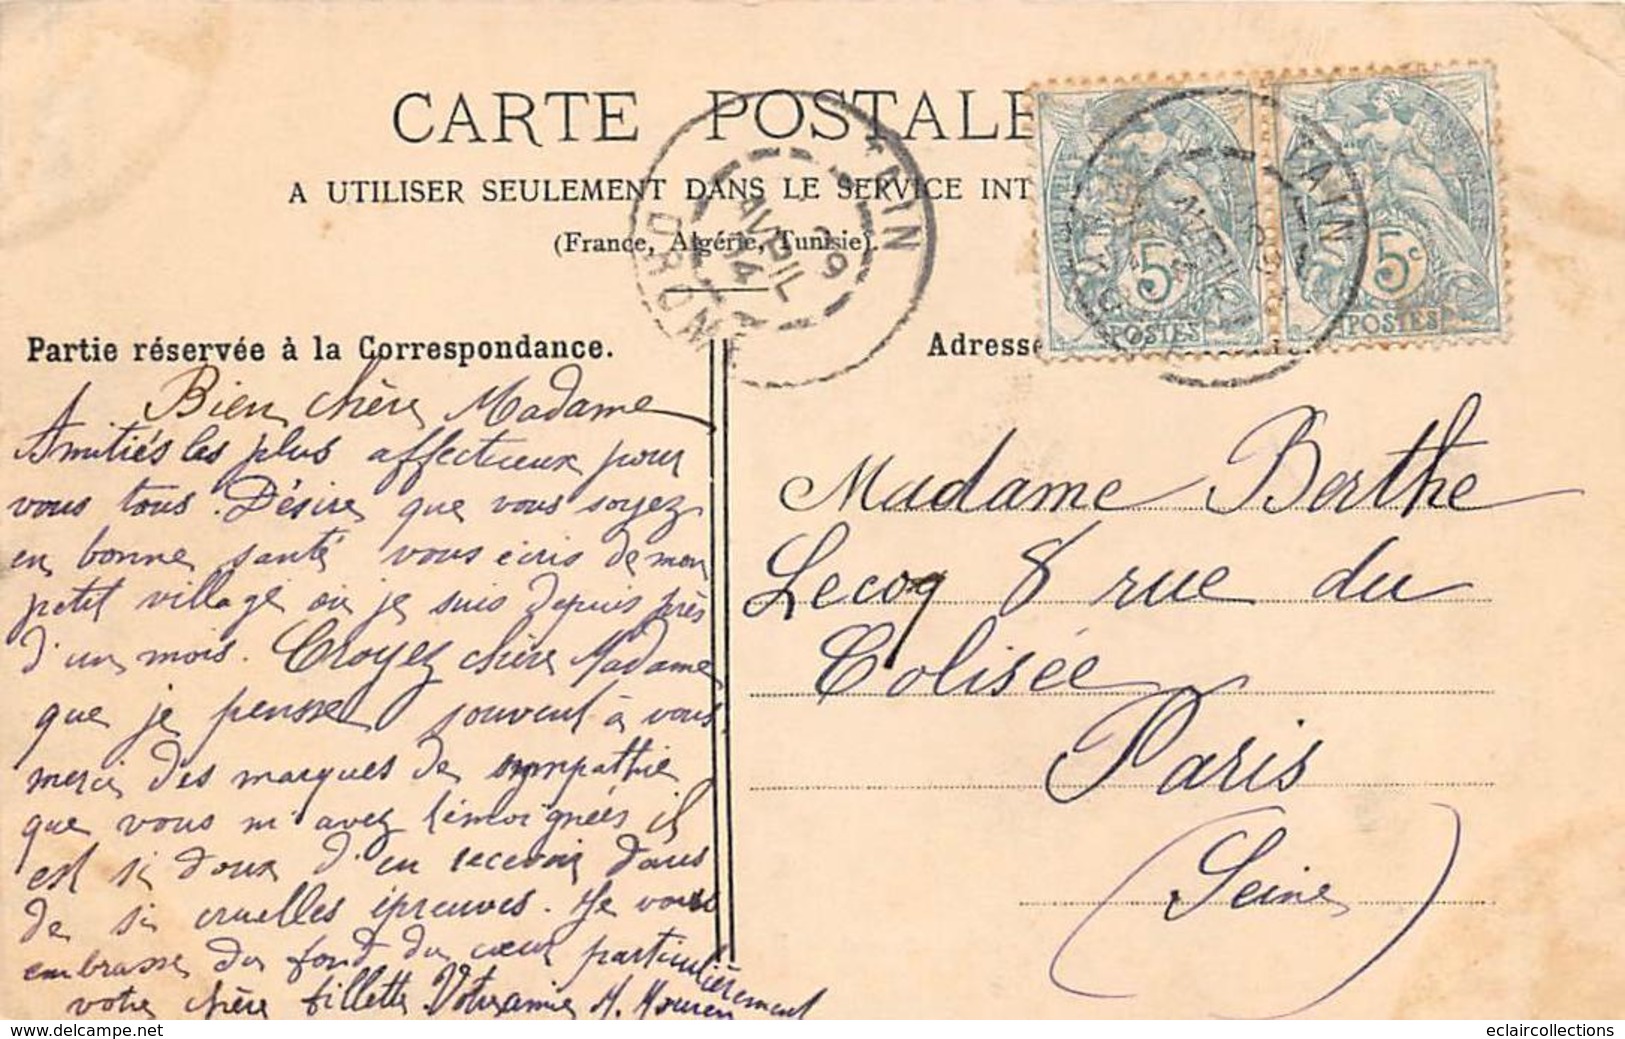 CARTE POSTALE
A UTILISER SEULEMENT DANS LE SERVICE INT
(France, Algérie, Tunisie).
TAIN
9
AVRIL
14
DROME
5c
POSTES
5c
POSTES
Partie réservée à la Correspondance.
Adresse
Bien chère Madame
Amitiés les plus affectueux pour
vous tous. Désire que vous soyez
en bonne santé vous écris de mon
petit village où je suis depuis près
d'un mois. Croyez chère Madame
que je pense souvent à vous
merci des marques de sympathie
que vous m'avez témoignées il
est si doux d'en recevoir dans
de si cruelles épreuves. Je vous
embrasse du fond du cœur particulièrement
votre chère fillette Votre amie M.
Madame Berthe
Lecoq 8 rue du
Colisée
Paris
(Seine)
eclaircollections